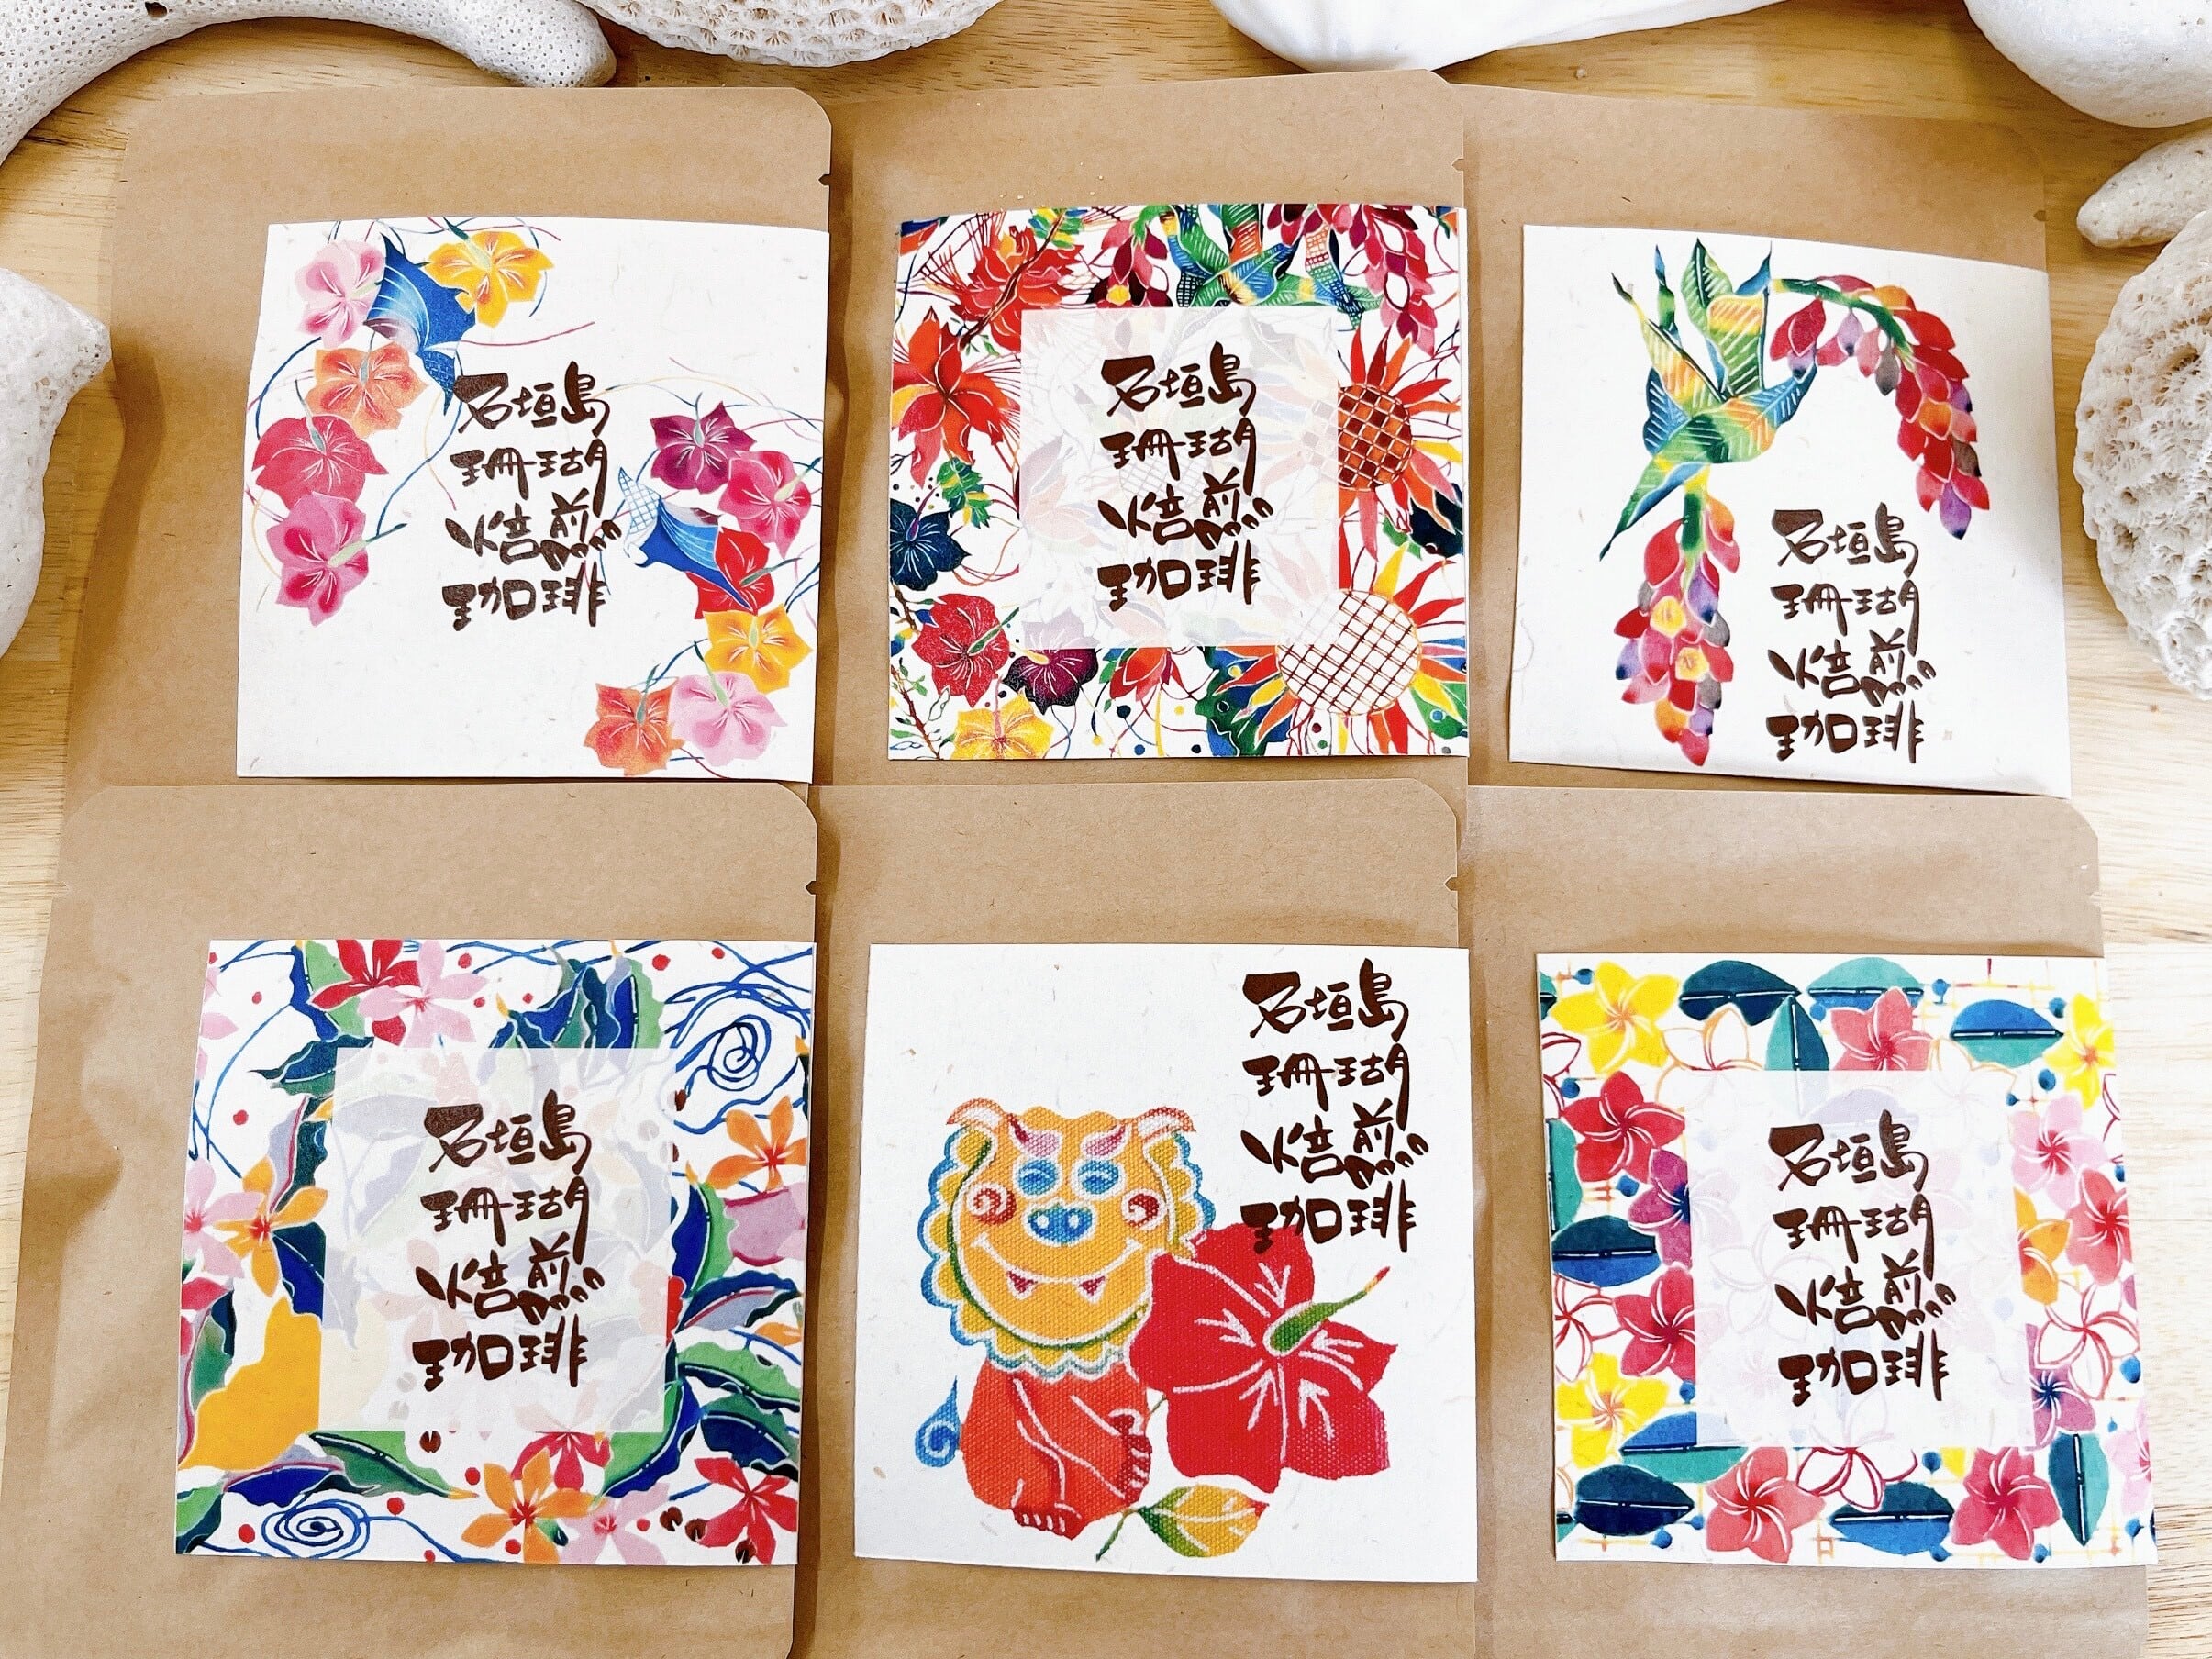 石垣島
珊瑚
焙煎
珈琲
石垣島
珊瑚
焙煎
珈琲
石垣島
珊瑚
焙煎
珈琲
石垣島
珊瑚
焙煎
珈琲
石垣島
珊瑚
焙煎
珈琲
石垣島
珊瑚
焙煎
珈琲